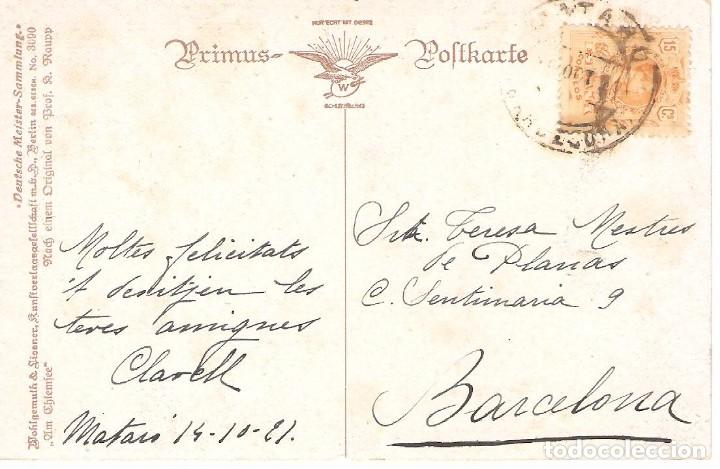 NUR ECHT MIT DIESER
Primus-Postkarte
W
SCHUTZMARKE
"Deutsche Meister-Sammlung."
Wohlgemuth & Lissner, Kunstverlagsgesellschaft m.b.H., Berlin No. 3090
"Am Chiemsee" Nach einem Original von Prof. K. Raupp
15 Cs
Moltes felicitats
't desitjen les
teves amigues
Clarell
Mataró 14-10-21.
Srta. Teresa Mestres
de Planas
C. Sentmaria 9
Barcelona
todocoleccion